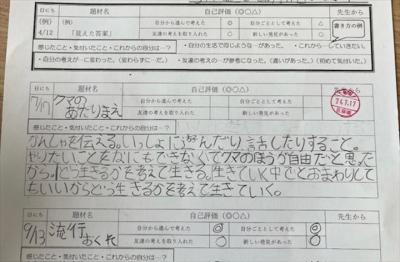 日にち 題材名 自己評価(◎○△) 先生から
(例) (例) 自分から進んで考えた ◎ 自分ごととして考えた △ 書き方の例
4/12 「見えた答案」 友達の考えを取り入れた ○ 新しい発見があった ○
感じたこと・気付いたこと・これからの自分は…?
・自分の生活で同じような…があった。 ・これから…していきたい。
・自分の考えが…に変わった。(変わらずに…だ。) ・友達の考えの…が参考になった。(違いがあった。)(初めて気付いた。)
7/17 クマの
あたりまえ
自分から進んで考えた 自分ごととして考えた
友達の考えを取り入れた 新しい発見があった
感じたこと・気付いたこと・これからの自分は…?
かんしゃを伝える。いっしょに遊んだり、話したりすること。
やりたいことをなにもできなくてクマのほうが自由だと思った
から。どう生きるかを考えて生きる。生きていく中でとおまわりして
もいいからどう生きるかを考えて生きていく。
日にち 題材名 自己評価(◎○△) 先生から
9/13 流行
おくれ
自分から進んで考えた ◎ 自分ごととして考えた ◎
友達の考えを取り入れた ○ 新しい発見があった ◎
感じたこと・気付いたこと・これからの自分は…?